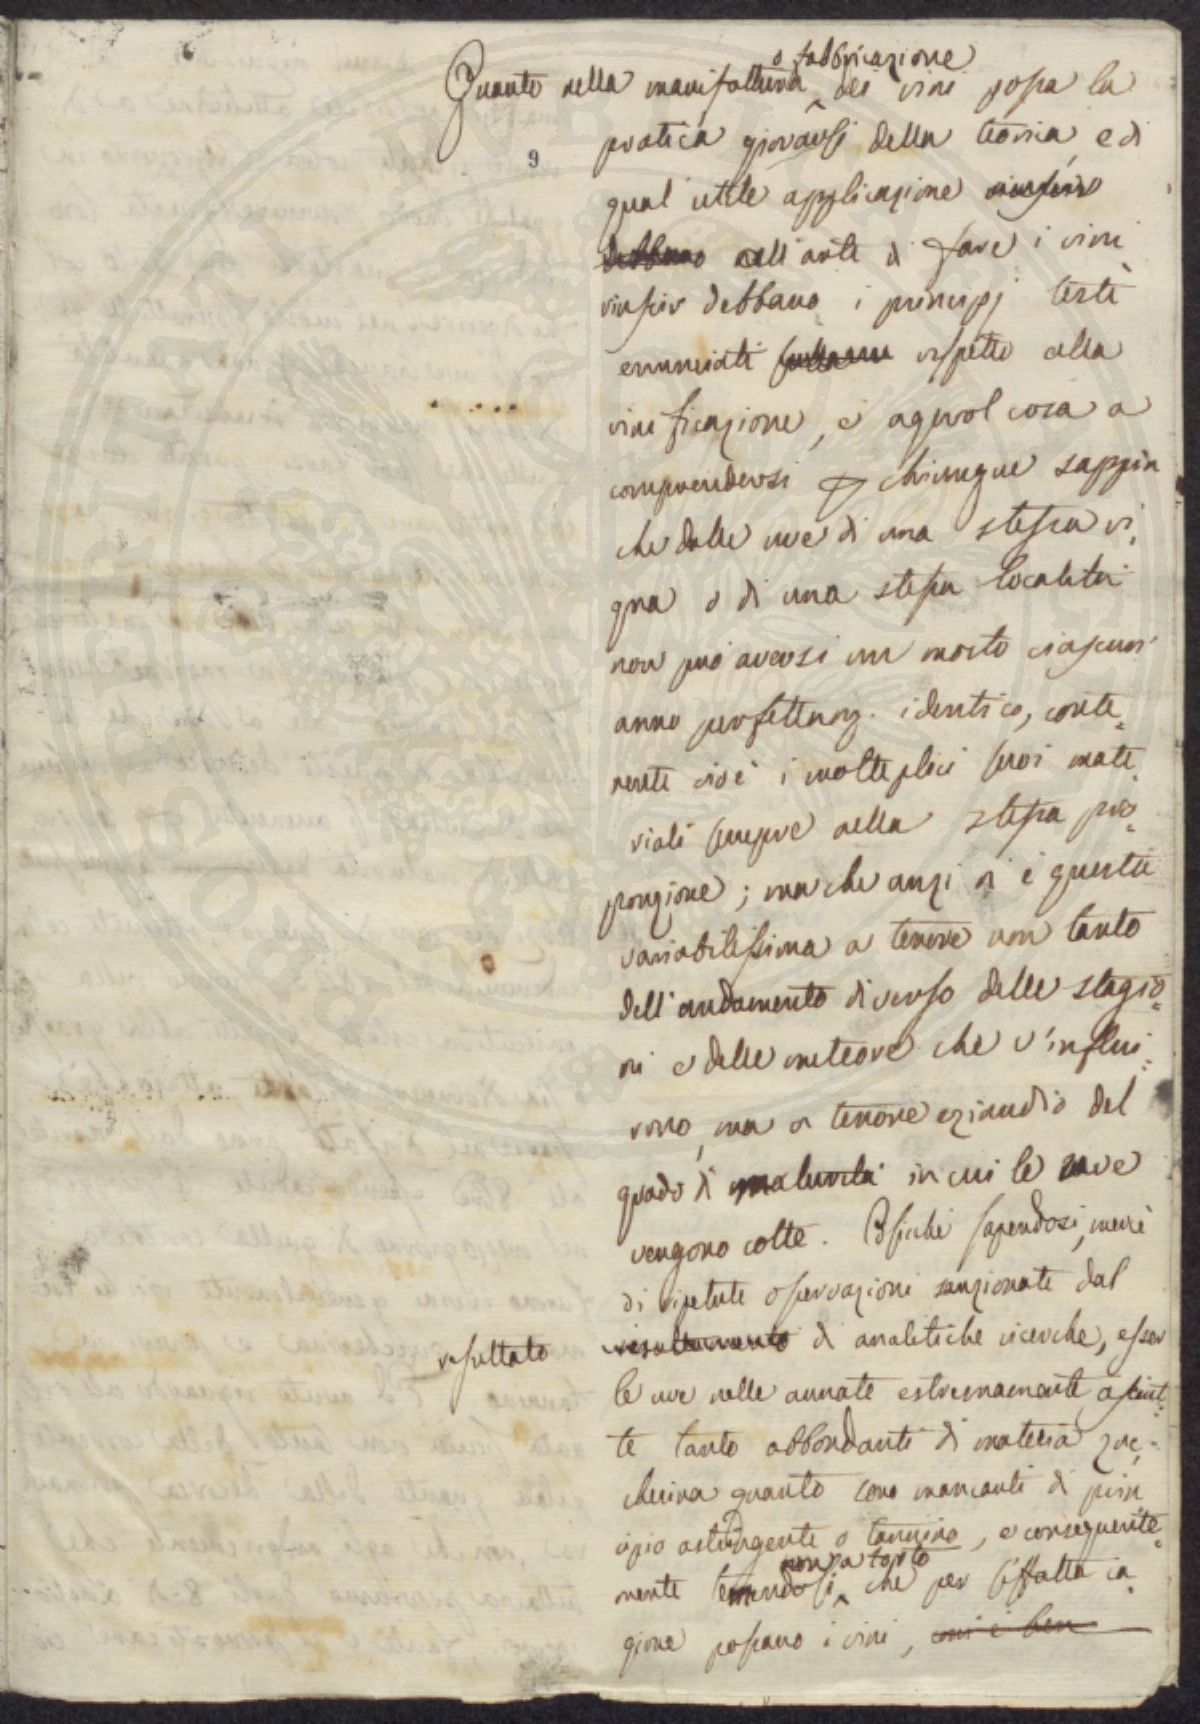 o fabbricazione
Quanto nella manifattura dei vini possa la
9
pratica giovarsi della teoria, e di
qual utile applicazione riuscire
debbano nell'arte di fare i vini
riuscir debbano i principj testè
enunciati sullanu rispetto alla
vinificazione, è agevol cosa a
comprendersi chiunque sappia
che dalle uve di una stessa vi„
gna o di una stessa localita
non può aversi un mosto ciascun'
anno perfettam. identico, conte„
nente cioè i molteplici suoi mate„
riali sempre nella stessa pro„
porzione; ma che anzi si è questa
variabilissima a tenore non tanto
dell'andamento diverso delle stagio„
ni e delle meteore che v'influi„
rono, ma a tenore eziandio del
grado di maturità in cui le uve
vengono colte. Sicchè sapendosi, mercè
di ripetute osservazioni sanzionate dal
resultato risultamento di analitiche ricerche, esser
le uve nelle annate estremamente asciut„
te tanto abbondanti di materia zuc„
cherina quanto sono mancanti di prin
cipio astringente o tannino, e conseguente„
non a torto
mente temendosi che per siffatta ca„
gione possano i vini, com'è ben